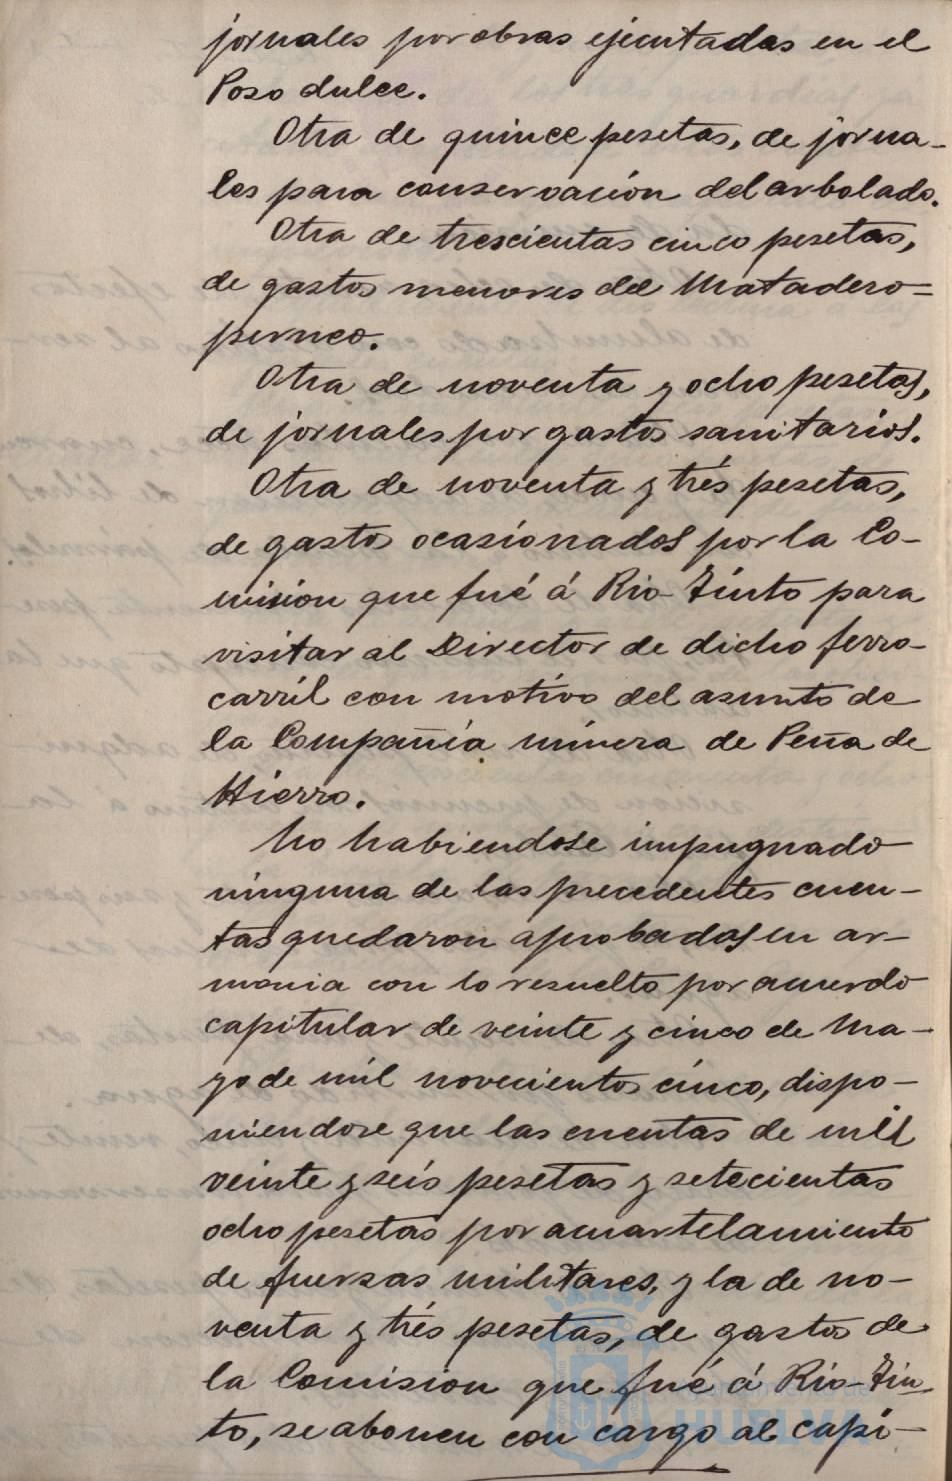 jornales por obras ejecutadas en el
Poso dulce.
Otra de quince pesetas, de jorna-
les para conservación del arbolado.
Otra de trescientas cinco pesetas,
de gastos menores del Matadero=
perneo.
Otra de noventa y ocho pesetas,
de jornales por gastos sanitarios.
Otra de noventa y trés pesetas,
de gastos ocasionados por la Co-
mision que fué á Rio-Tinto para
visitar al Director de dicho ferro-
carril con motivo del asunto de
la Compañía minera de Peña de
Hierro.
No habiendose impugnado
ninguna de las precedentes cuen-
tas quedaron aprobadas en ar-
monia con lo resuelto por acuerdo
capitular de veinte y cinco de Ma-
yo de mil novecientos cinco, dispo-
niendose que las cuentas de mil
veinte y seis pesetas y setecientas
ocho pesetas por acuartelamiento
de fuersas militares, y la de no-
venta y trés pesetas, de gastos de
la Comision que fué á Rio-Tin-
to, se abonen con cargo al capi-
Ayuntamiento de
HUELVA